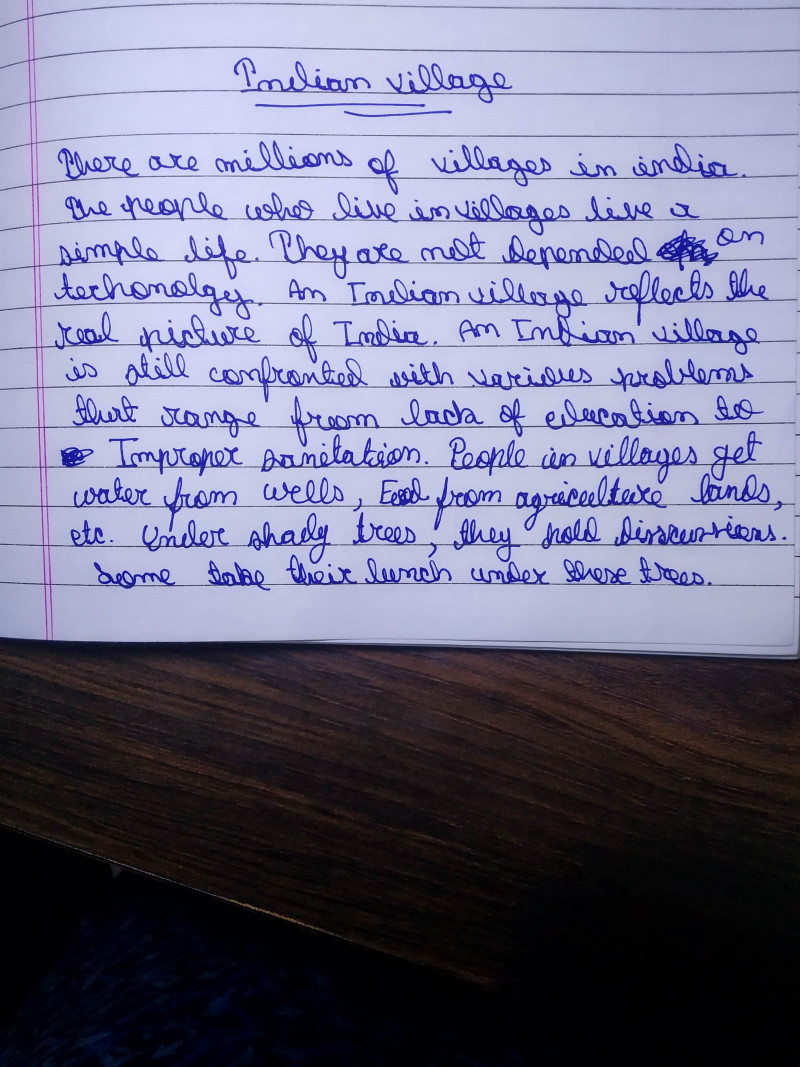 Indian village
There are millions of villages in india.
The people who live in villages live a
simple life. They are not depended on
techonolgy. An Indian village reflects the
real picture of India. An Indian village
is still confronted with various problems
that range from lack of education to
Improper sanitation. People in villages get
water from wells, Food from agriculture lands,
etc. Under shady trees, they hold discussions.
Some take their lunch under these trees.